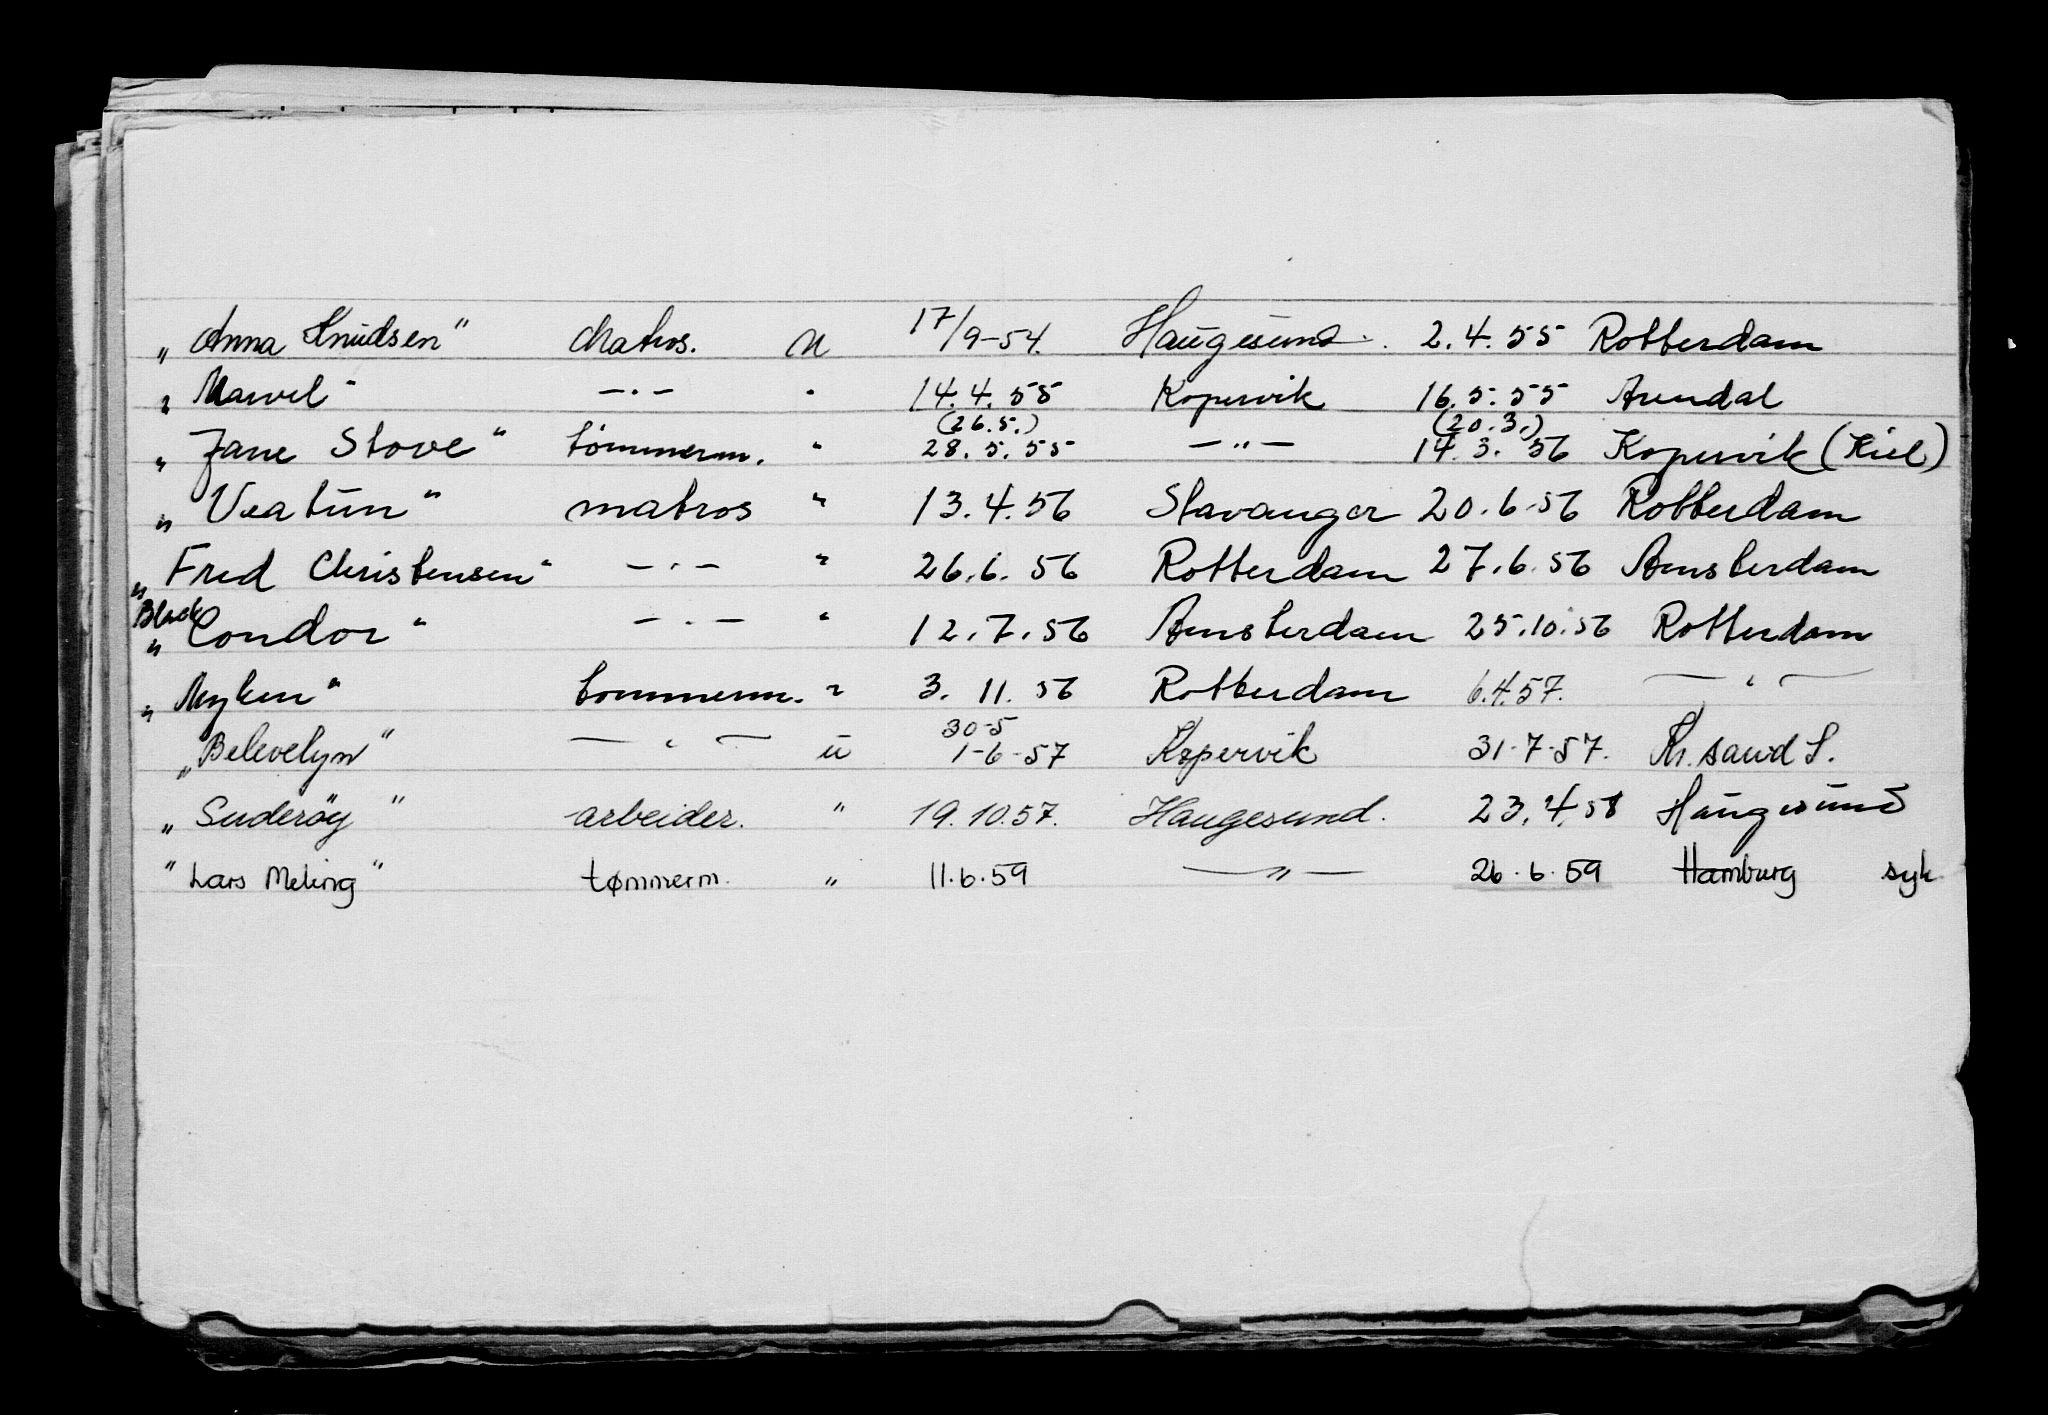 „ Anna Knudsen" Matros. u 17/9-54. Haugesund. 2.4.55 Rotterdam
„ Marvel" —·— " 14.4.55 Kopervik 16.5.55 Arendal
(26.5.) (20.3.)
„ Jane Stove" tömmerm. " 28.5.55 —"— 14.3.56 Kopervik (Kiel)
„ Veatun" matros " 13.4.56 Stavanger 20.6.56 Rotterdam
„ Fred Christensen" —·— " 26.6.56 Rotterdam 27.6.56 Amsterdam
Black
„ Condor" —·— " 12.7.56 Amsterdam 25.10.56 Rotterdam
„ Myken" tommerm. " 3.11.56 Rotterdam 6.4.57. —"—
30-5
„ Belevelyn" —"— u 1-6-57 Kopervik 31-7-57. Kr.sand S.
„ Suderøy" arbeider. " 19.10.57. Haugesund. 23.4.58 Haugesund
" Lars Meling" tømmerm. " 11.6.59 —"— 26.6.59 Hamburg syk